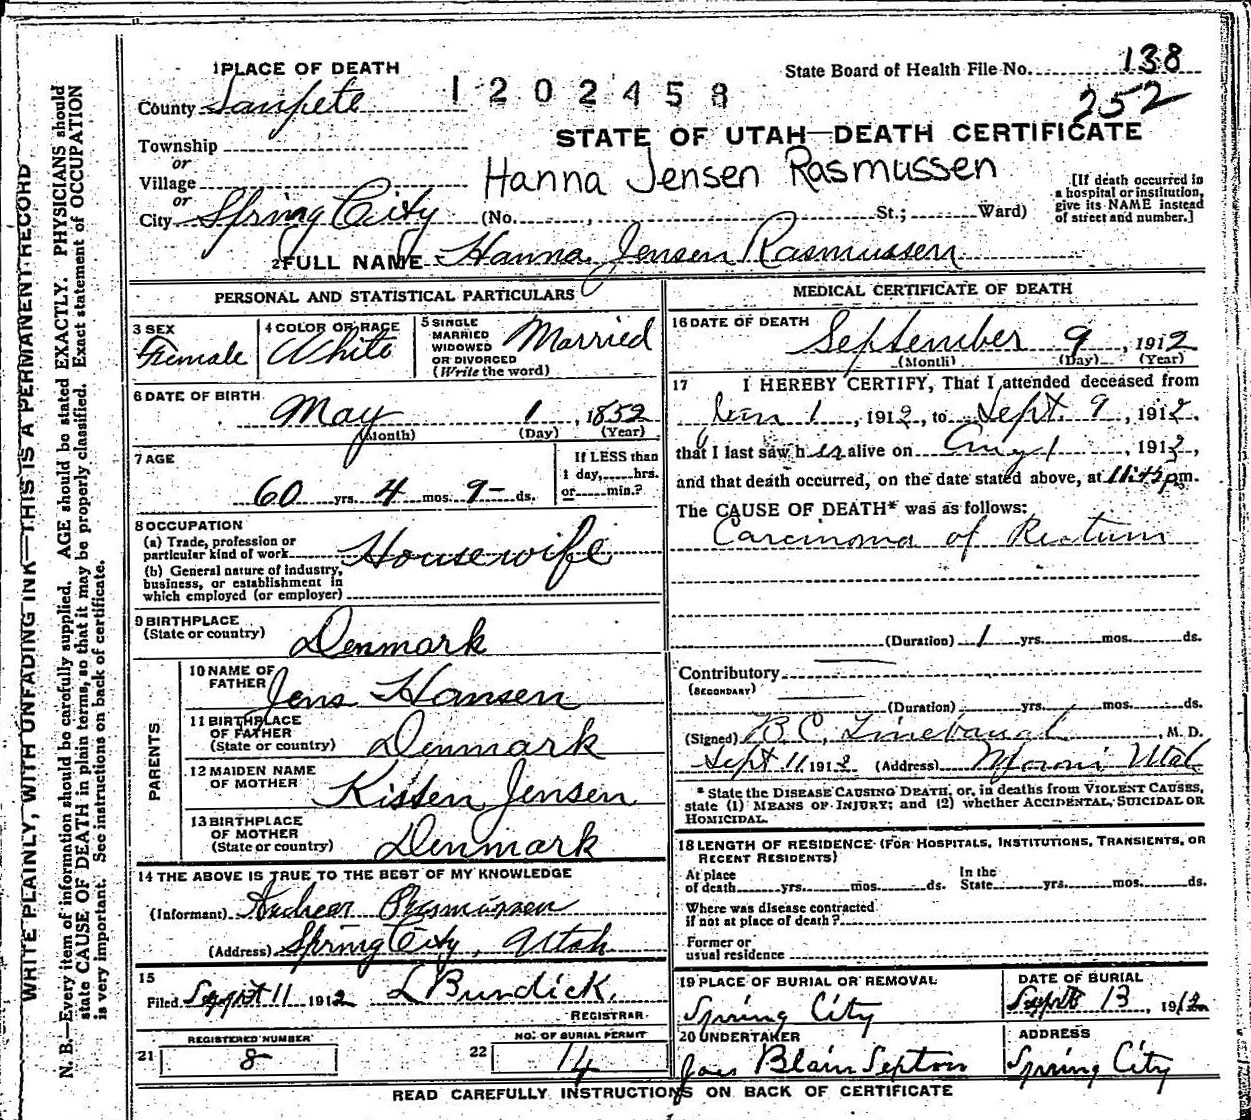 WRITE PLAINLY, WITH UNFADING INK—THIS IS A PERMANENT RECORD
N. B.—Every item of information should be carefully supplied. AGE should be stated EXACTLY. PHYSICIANS should
state CAUSE OF DEATH in plain terms, so that it may be properly classified. Exact statement of OCCUPATION
is very important. See instructions on back of certificate.
1 PLACE OF DEATH
County Sanpete
1202458
State Board of Health File No. 138
252
STATE OF UTAH—DEATH CERTIFICATE
Township
or
Village
or
City Spring City (No. , St.; Ward)
Hanna Jensen Rasmussen
[If death occurred in
a hospital or institution,
give its NAME instead
of street and number.]
2 FULL NAME Hanna Jensen Rasmussen
PERSONAL AND STATISTICAL PARTICULARS
3 SEX
Female
4 COLOR OR RACE
White
5 SINGLE
MARRIED
WIDOWED
OR DIVORCED
(Write the word)
Married
6 DATE OF BIRTH
May 1, 1852
(Month) (Day) (Year)
7 AGE
60 yrs. 4 mos. 9 ds.
If LESS than
1 day, hrs.
or min.?
8 OCCUPATION
(a) Trade, profession or
particular kind of work Housewife
(b) General nature of industry,
business, or establishment in
which employed (or employer)
9 BIRTHPLACE
(State or country) Denmark
PARENTS
10 NAME OF
FATHER Jens Hansen
11 BIRTHPLACE
OF FATHER
(State or country) Denmark
12 MAIDEN NAME
OF MOTHER Kisten Jensen
13 BIRTHPLACE
OF MOTHER
(State or country) Denmark
14 THE ABOVE IS TRUE TO THE BEST OF MY KNOWLEDGE
(Informant) Andrear Rasmussen
(Address) Spring City, Utah
15
Filed Sept 11 1912 L Burdick.
REGISTRAR
REGISTERED NUMBER
21 8
NO. OF BURIAL PERMIT
22 14
MEDICAL CERTIFICATE OF DEATH
16 DATE OF DEATH
September 9, 1912
(Month) (Day) (Year)
17 I HEREBY CERTIFY, That I attended deceased from
Jan 1, 1912, to Sept. 9, 1912.
that I last saw her alive on Aug 1, 1912,
and that death occurred, on the date stated above, at 11:45 pm.
The CAUSE OF DEATH* was as follows:
Carcinoma of Rectum
(Duration) 1 yrs. mos. ds.
Contributory
(SECONDARY)
(Duration) yrs. mos. ds.
(Signed) B. C. Linebaugh, M. D.
Sept 11, 1912 (Address) Moroni Utah
* State the DISEASE CAUSING DEATH, or, in deaths from VIOLENT CAUSES,
state (1) MEANS OF INJURY; and (2) whether ACCIDENTAL, SUICIDAL OR
HOMICIDAL.
18 LENGTH OF RESIDENCE (FOR HOSPITALS, INSTITUTIONS, TRANSIENTS, OR
RECENT RESIDENTS)
At place
of death yrs. mos. ds.
In the
State yrs. mos. ds.
Where was disease contracted
if not at place of death?
Former or
usual residence
19 PLACE OF BURIAL OR REMOVAL
Spring City
DATE OF BURIAL
Sept 13 1912
20 UNDERTAKER
Blain Septon
ADDRESS
Spring City
READ CAREFULLY INSTRUCTIONS ON BACK OF CERTIFICATE